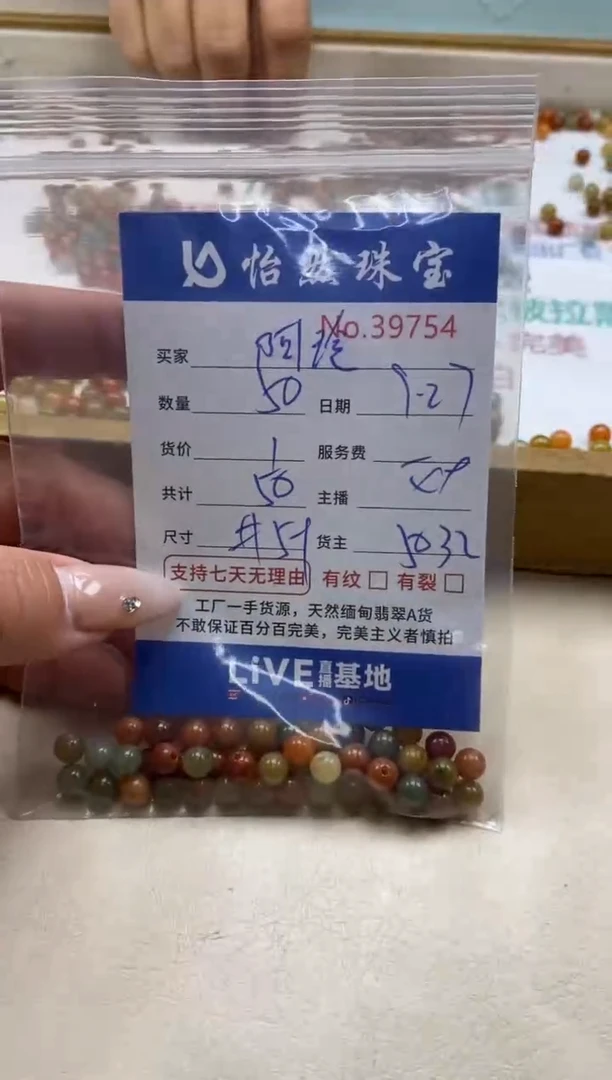 怡然珠宝
No.39754
买家 阿
数量 50 日期 7-27
货价 1 服务费
共计 50 主播
尺寸 #51 货主 5032
支持七天无理由 有纹 有裂
工厂一手货源，天然缅甸翡翠A货
不敢保证百分百完美，完美主义者慎拍
LiVE直播基地
完美